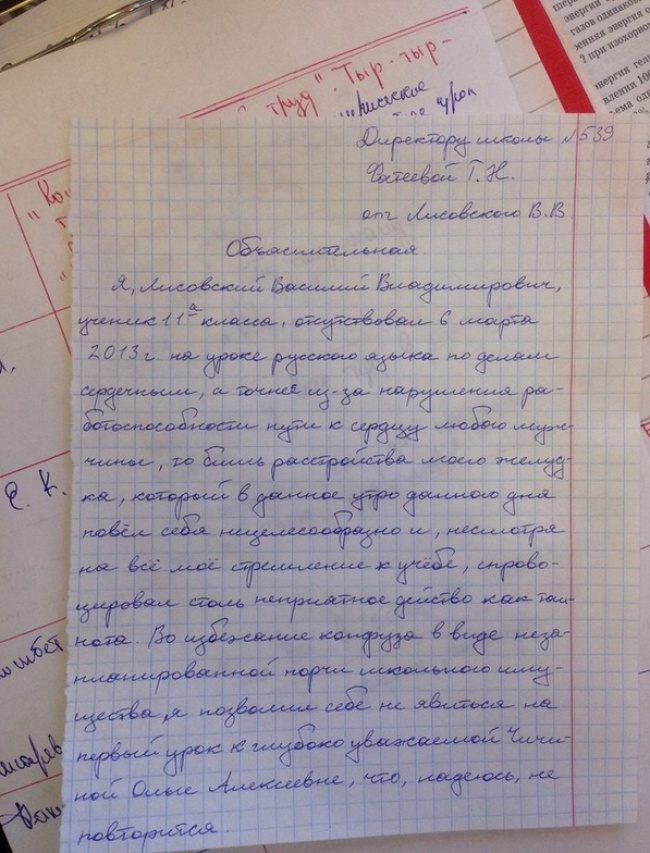 труд". Тыр-тыр-
урок
"Ко
Е. К.
энергии
газов одинаков
? при изохорно
энергия гели
Директору школы №539
Фатеевой Г.Н.
от Лисовского В.В
Объяснительная
Я, Лисовский Василий Владимирович,
ученик 11а класса, отсутствовал 6 марта
2013г. на уроке русского языка по делам
сердечным, а точнее из-за нарушения ра-
ботоспособности пути к сердцу любого муж-
чины, то бишь расстройства моего желуд-
ка, который в данное утро данного дня
повёл себя нецелесообразно и, несмотря
на всё моё стремление к учёбе, спрово-
цировал столь неприятное действо как тош-
нота. Во избежание конфуза в виде неза-
планированной порчи школьного иму-
щества, я позволил себе не явиться на
первый урок к глубоко уважаемой Чичи-
ной Ольге Алексеевне, что, надеюсь, не
повторится.